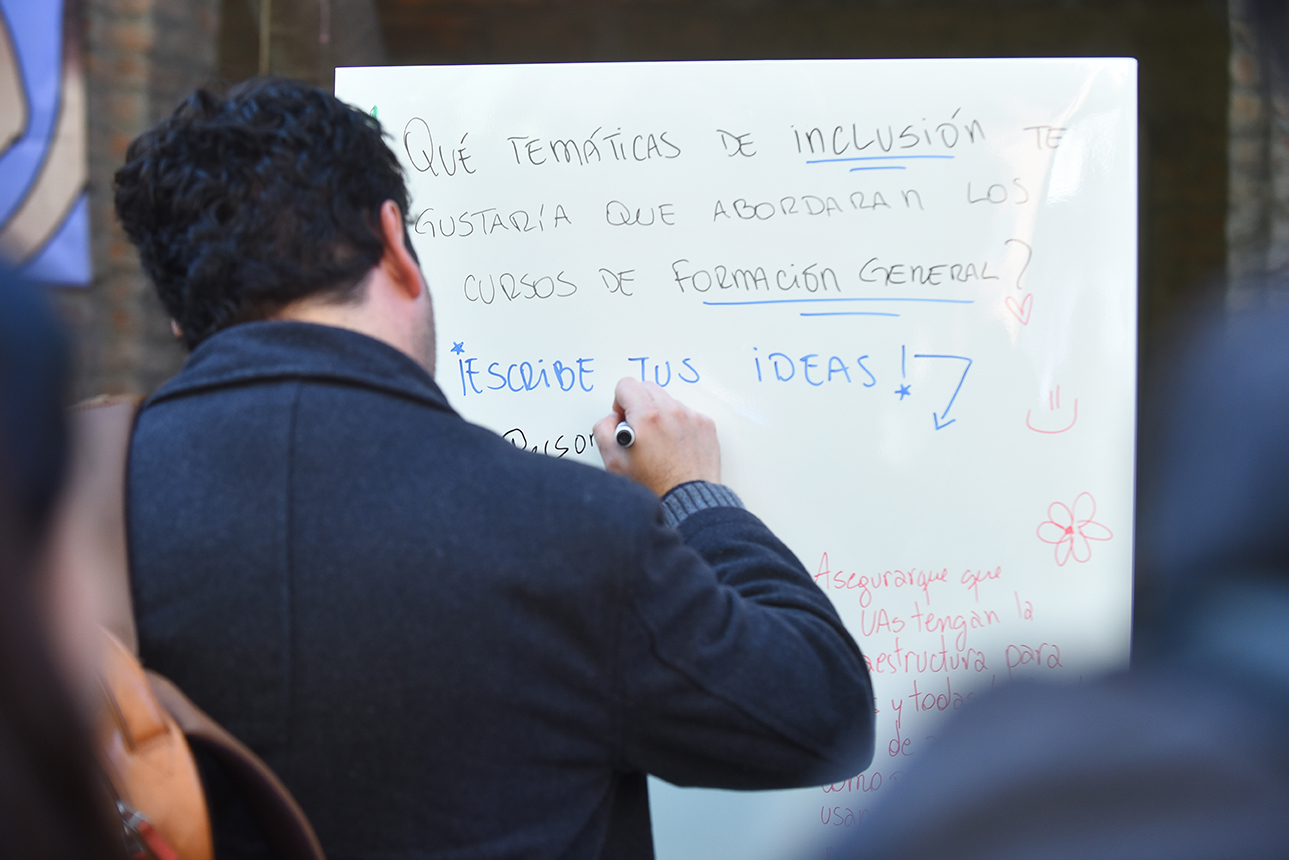 Qué TEMÁTICAS DE INCLUSIÓN TE
GUSTARÍA QUE ABORDARAN LOS
CURSOS DE FORMACIÓN GENERAL?
¡ESCRIBE TUS IDEAS!
Person
Asegurarque que
UAs tengan la
aestructura para
y todas
de
como
usan